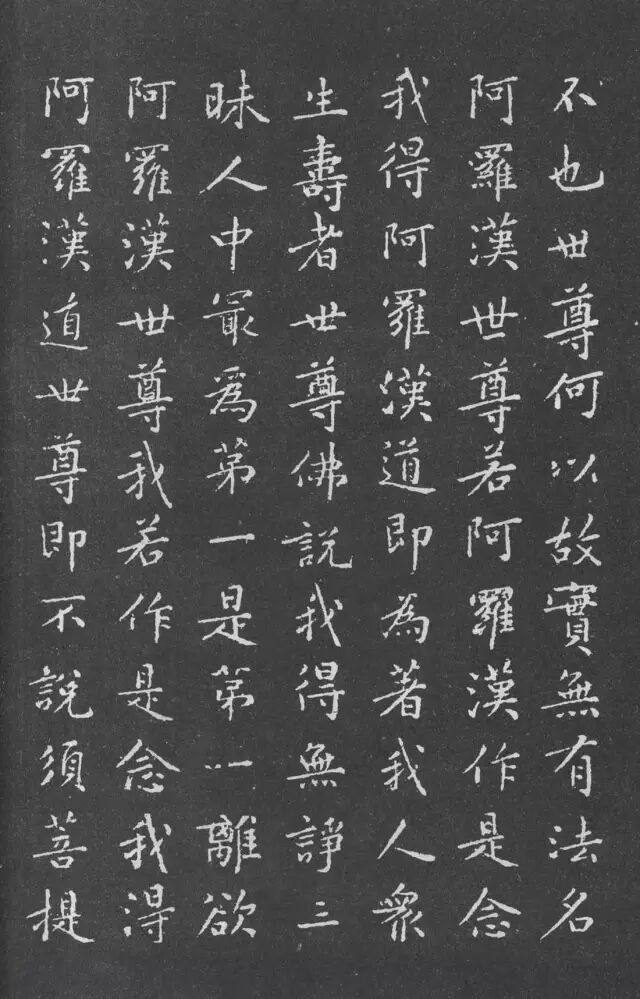 不也世尊何以故實無有法名
阿羅漢世尊若阿羅漢作是念
我得阿羅漢道即為著我人衆
生壽者世尊佛說我得無諍三
昧人中冣為第一是第一離欲
阿羅漢世尊我若作是念我得
阿羅漢道世尊即不說須菩提